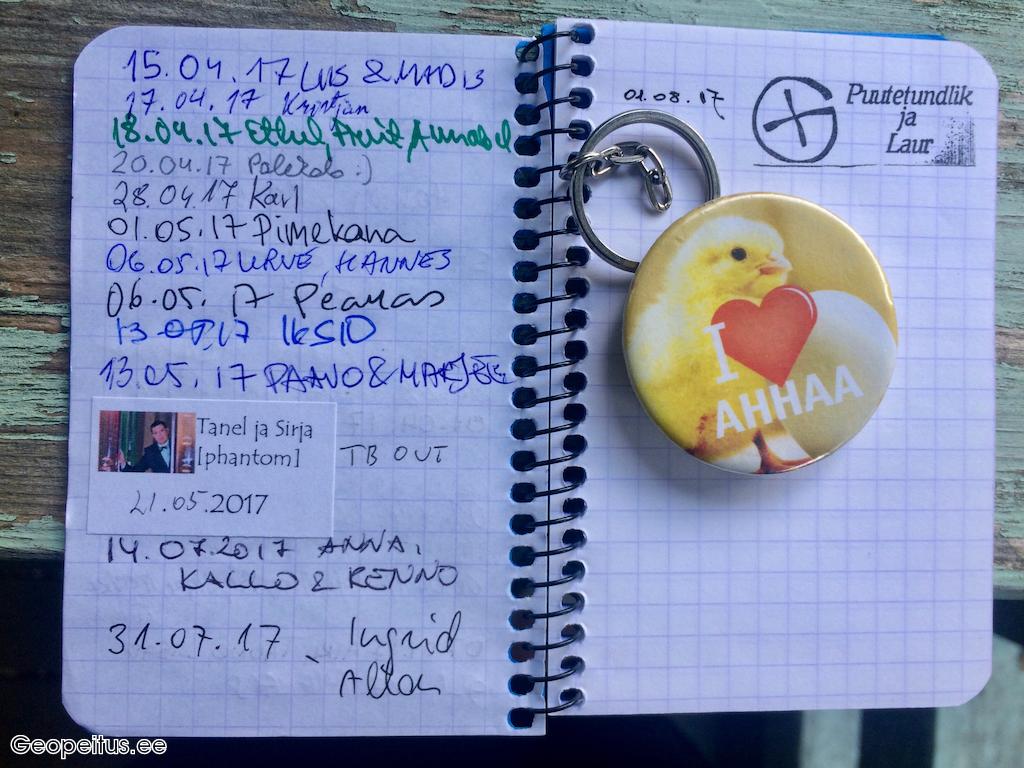 15.04.17 LIIS & MADIS
17.04.17 Kristjan
18.04.17 Annabel
20.04.17 :)
28.04.17 Karl
01.05.17 Pimekana
06.05.17 URVE, HANNES
06.05.17 Peamas
13.05.17 IKSID
13.05.17 PAAVO & MARJE
Tanel ja Sirja
[phantom]
21.05.2017
TB OUT
14.07.2017 ANNA,
KALLO & KENNO
31.07.17 Ingrid
01.08.17
Puutetundlik
ja
Laur
I
AHHAA
Geopeitus.ee